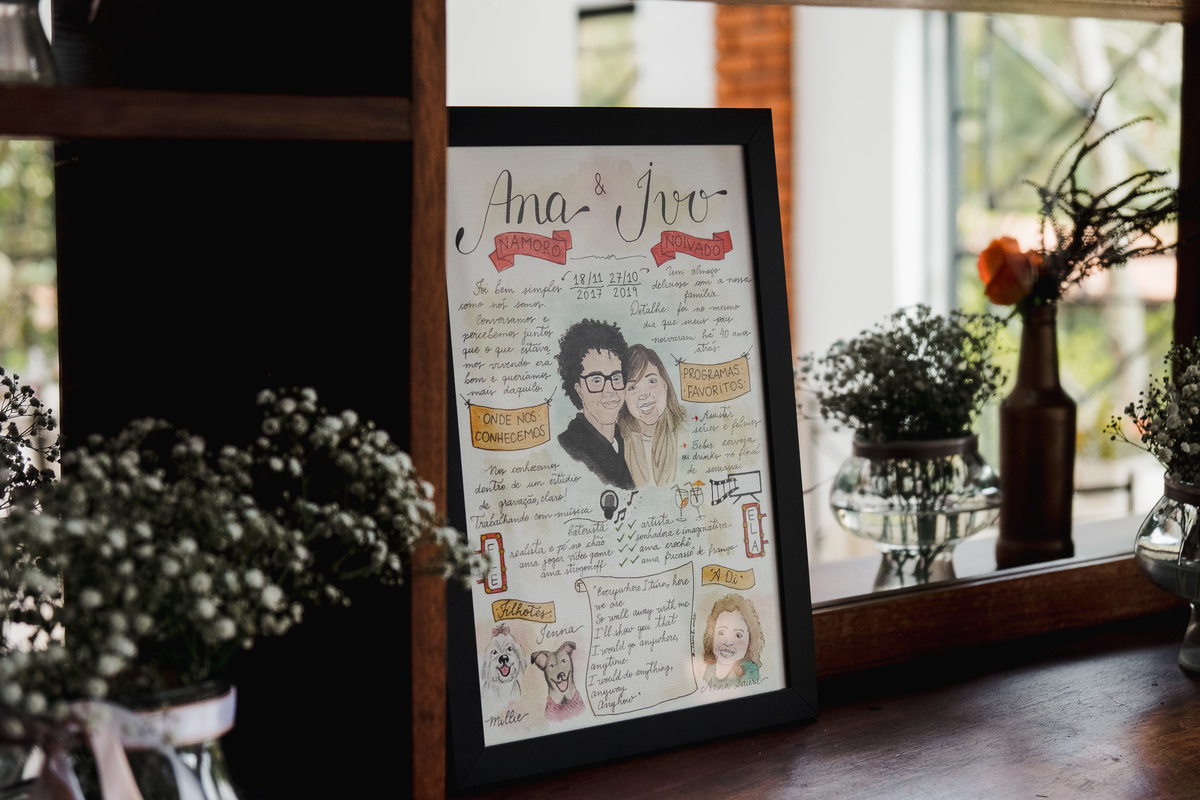 Ana & Ivo
NAMORO
NOIVADO
18/11 27/10
2017 2019
Foi bem simples
como nós somos.
Conversamos e
percebemos juntos
que o que estáva
mos vivendo era
bom e queríamos
mais daquilo.
Um almoço
delicioso com a nossa
família.
Detalhe: foi no mesmo
dia que meus pais
noivaram há 40 anos
atrás.
ONDE NOS
CONHECEMOS
PROGRAMAS
FAVORITOS:
Nos conhecemos
dentro de um estúdio
de gravação, claro!
Trabalhando com música
Assistir
séries e filmes
Beber cerveja
ou drinks no final
de semana!
ELE
baterista
realista e pé no chão
ama jogar vídeo game
ama strogonoff
artista
sonhadora e imaginativa
ama crochê
ama fricassê de frango
ELA
Filhotes
Jenna
Millie
"Everywhere I turn, here
we are
So walk away with me
I'll show you that
I would go anywhere,
anytime
I would do anything,
anyway
Anyhow"
"A Di"
Anna Laura